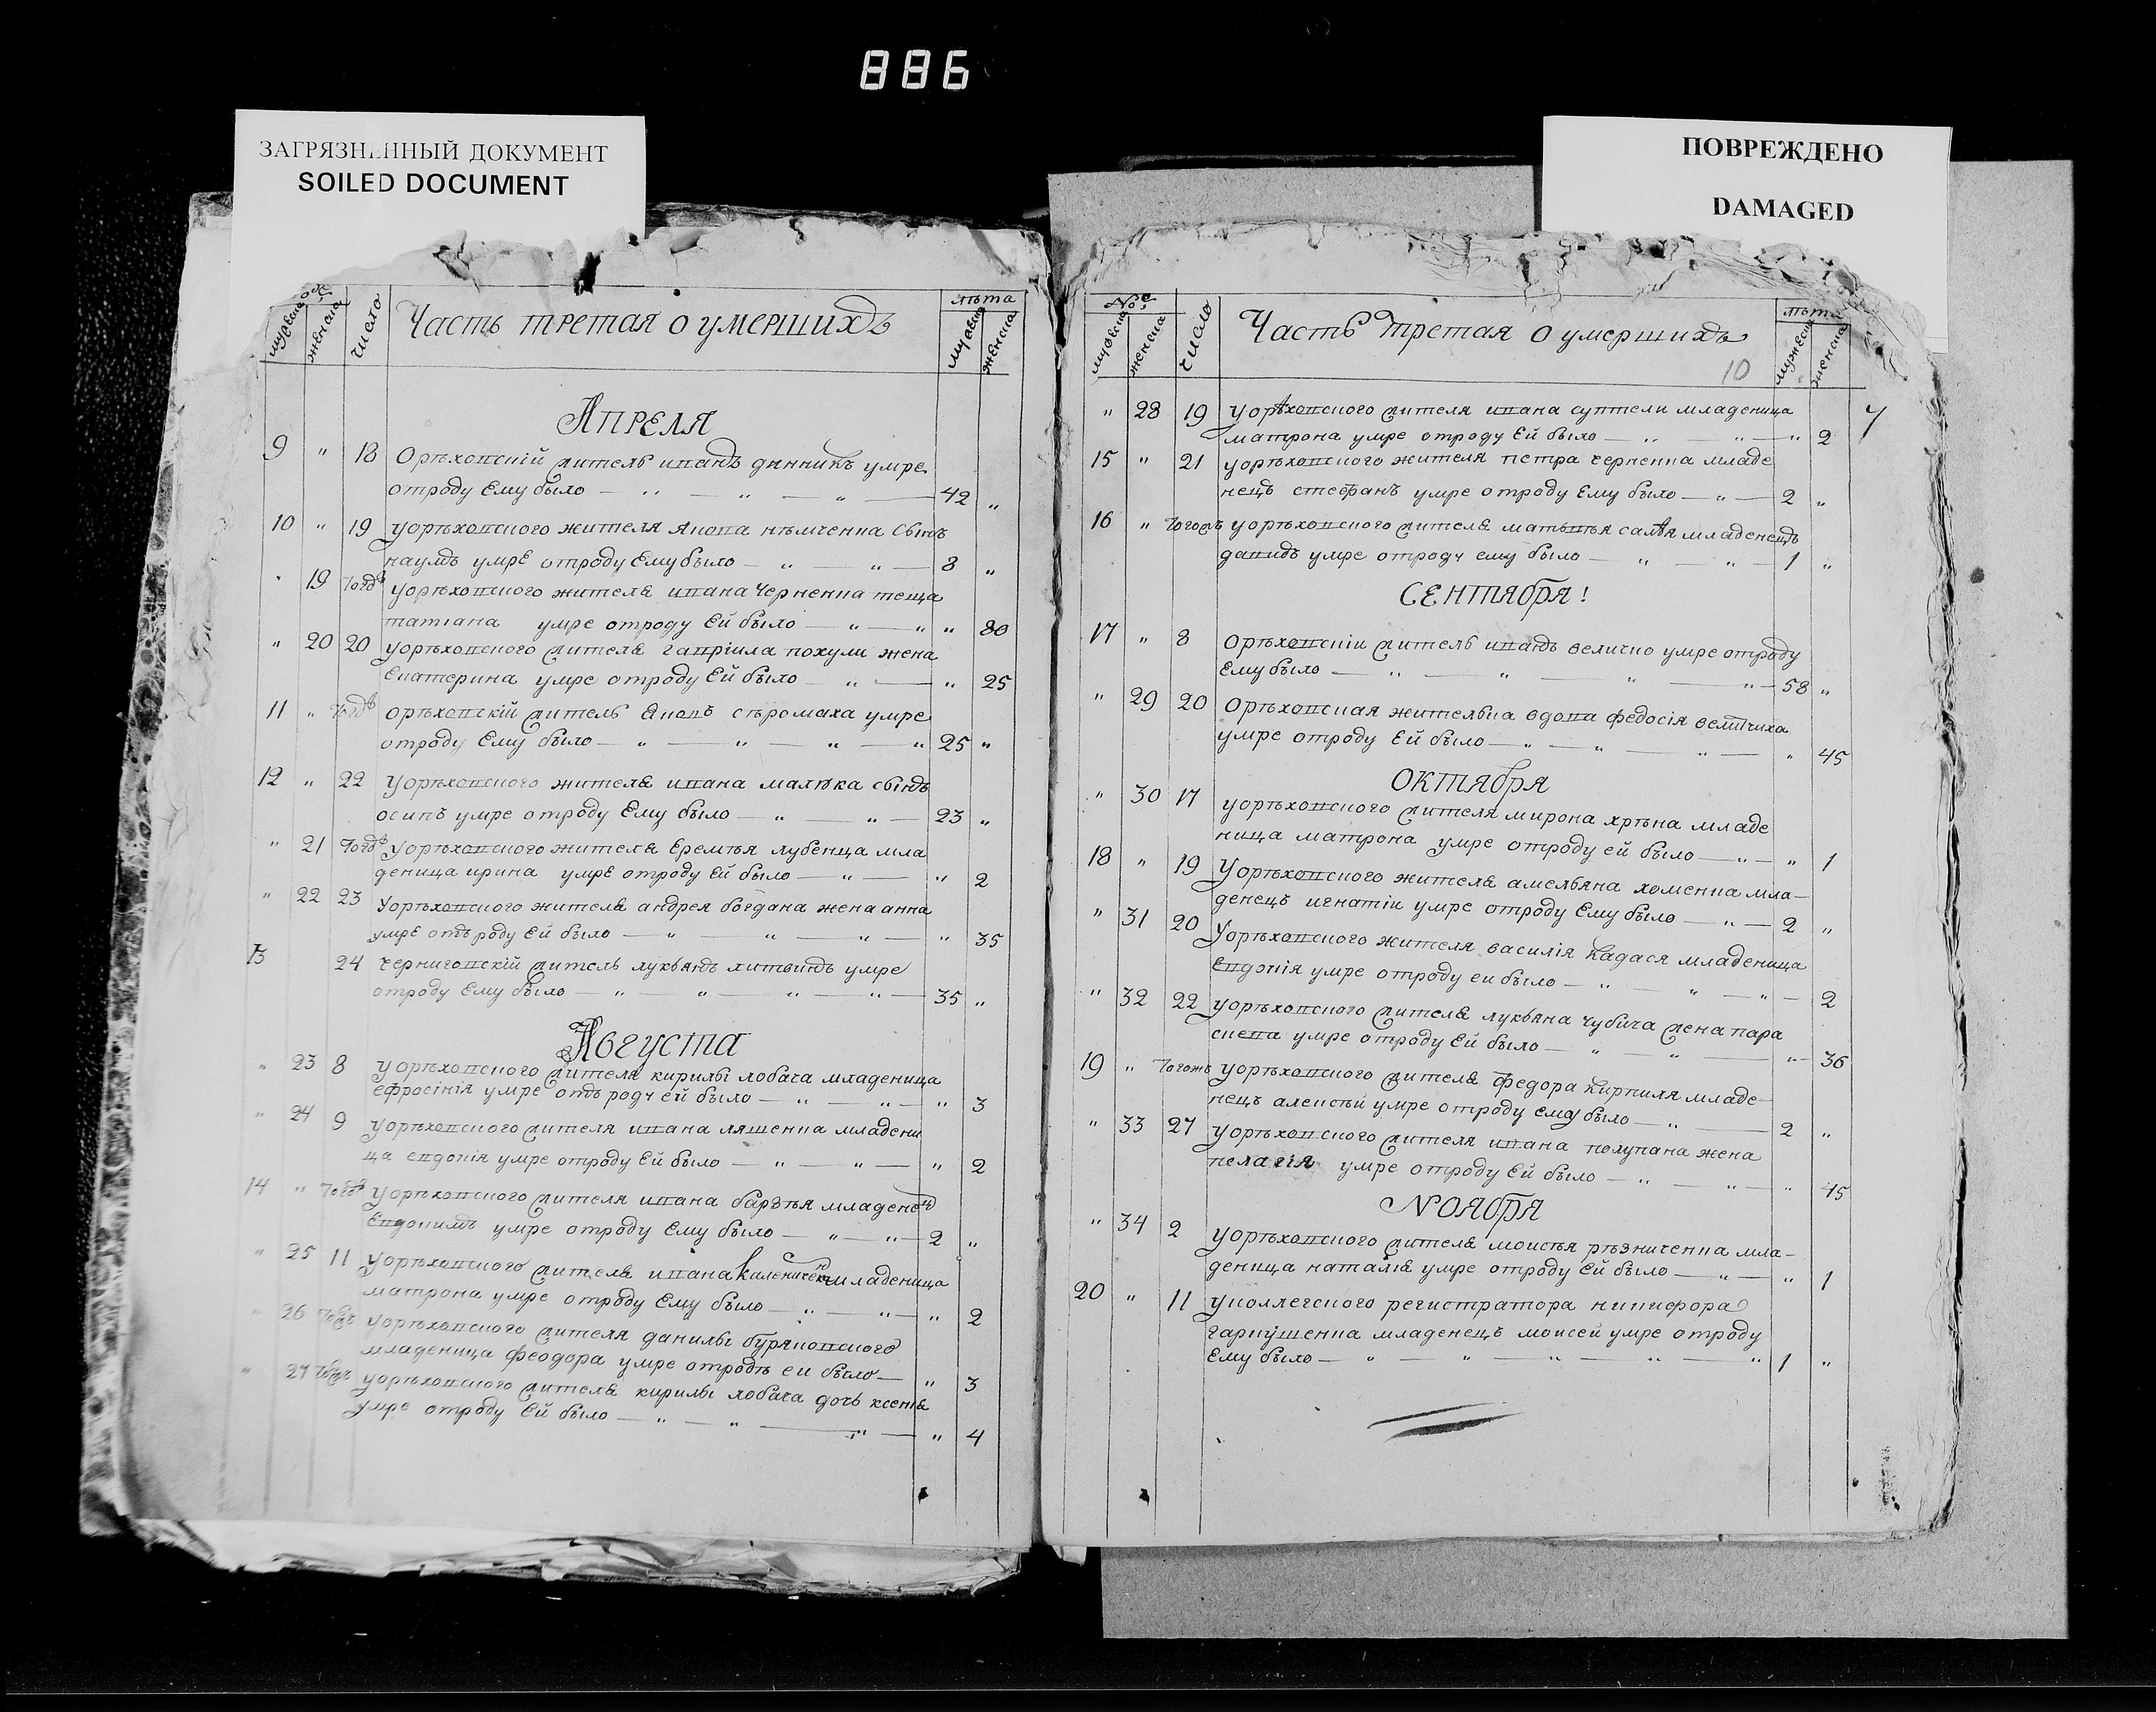 886
ЗАГРЯЗНЕННЫЙ ДОКУМЕНТ
SOILED DOCUMENT
ПОВРЕЖДЕНО
DAMAGED
мужеска женска число Часть третая о умершихъ лѣта мужеска женска
Апреля
9 " 18 Орѣховскій житель иванъ дынникъ умре
отроду Ему было — " — " — " — 42 "
10 " 19 уорѣховского жителя якова нѣмченка сынъ
наумъ умре отроду Ему было — " — " — 8 "
19 Тогожъ уорѣховского жителя ивана Черненка теща
татіана умре отроду Ей было — " — " " 80
" 20 20 уорѣховского жителя гавріила похули жена
Екатерина умре отроду Ей было — " — " 25
11 " Тогожъ орѣховскій житель яковъ сѣромаха умре
отроду Ему было — " — " — " — " 25 "
12 " 22 Уорѣховского жителя ивана малюка сынъ
осипъ умре отроду Ему было — " — " — 23 "
" 21 Тогожъ Уорѣховского жителя Еремѣя лубенца мла
деница ирина умре отроду Ей было — " — " 2
" 22 23 Уорѣховского жителя андрея богдана жена анна
умре отъ роду Ей было — " — " — " — " 35
13 24 черниговскій житель лукьянъ литвинъ умре
отроду Ему было — " — " — " — " — 35 "
Августа
" 23 8 уорѣховского жителя кирилы лобача младеница
ефросінія умре отъ роду ей было — " — " — " 3
" 24 9 уорѣховского жителя ивана ляшенка младени
ца евдокія умре отроду Ей было — " — " — " 2
14 " Тогожъ уорѣховского жителя ивана младенец
Евдокимъ умре отроду Ему было — " — " — 2 "
" 25 11 уорѣховского жителя ивана каленичен младеница
матрона умре отроду Ему было — " — " — " 2
" 26 Тогожъ уорѣховского жителя данилы буряковского
младеница феодора умре отродѣ еи было — " 3
" 27 Тогожъ уорѣховского жителя кирилы лобача дочь ксенія
умре отроду Ей было — " — " — " — " 4
No мужеска женска число Часть третая о умершихъ лѣта мужеска женска
10
" 28 19 уорѣховского жителя ивана суптели младеница 7
матрона умре отроду Ей было — " — " — " 2
15 " 21 уорѣховского жителя петра черненка младе
нецъ стефанъ умре отроду Ему было — " — 2 "
16 " Тогожъ уорѣховского жителя матвѣя младенецъ
давидъ умре отроду ему было — " — " — 1 "
Сентября!
17 " 8 Орѣховскіи житель иванъ величко умре отроду
Ему было — " — " — " — " — 58 "
" 29 20 Орѣховская жителька вдова федосія величиха
умре отроду Ей было — " — " — " — " 45
Октября
" 30 17 уорѣховского жителя мирона хрѣна младе
ница матрона умре отроду ей было — " — " 1
18 " 19 Уорѣховского жителя амельяна хоменка мла—
денецъ игнатіи умре отроду Ему было — " — 2 "
" 31 20 Уорѣховского жителя василія кадася младеница
Евдокія умре отроду еи было — " — " — " — 2
" 32 22 уорѣховского жителя лукьяна чубича жена пара
скева умре отроду Ей было — " — " — " — 36
19 " Тогожъ уорѣховского жителя федора кирпиля младе
нецъ алексѣй умре отроду ему было — " — 2 "
" 33 27 уорѣховского жителя ивана полупана жена
пелагія умре отроду Ей было — " — " — " 45
Ноября
" 34 2 уорѣховского жителя моисѣя рѣзниченка мла—
деница наталія умре отроду Ей было — " — " 1
20 " 11 уколлегского регистратора никифора
гаркушенка младенецъ моисей умре отроду
Ему было — " — " — " — " — " 1 "